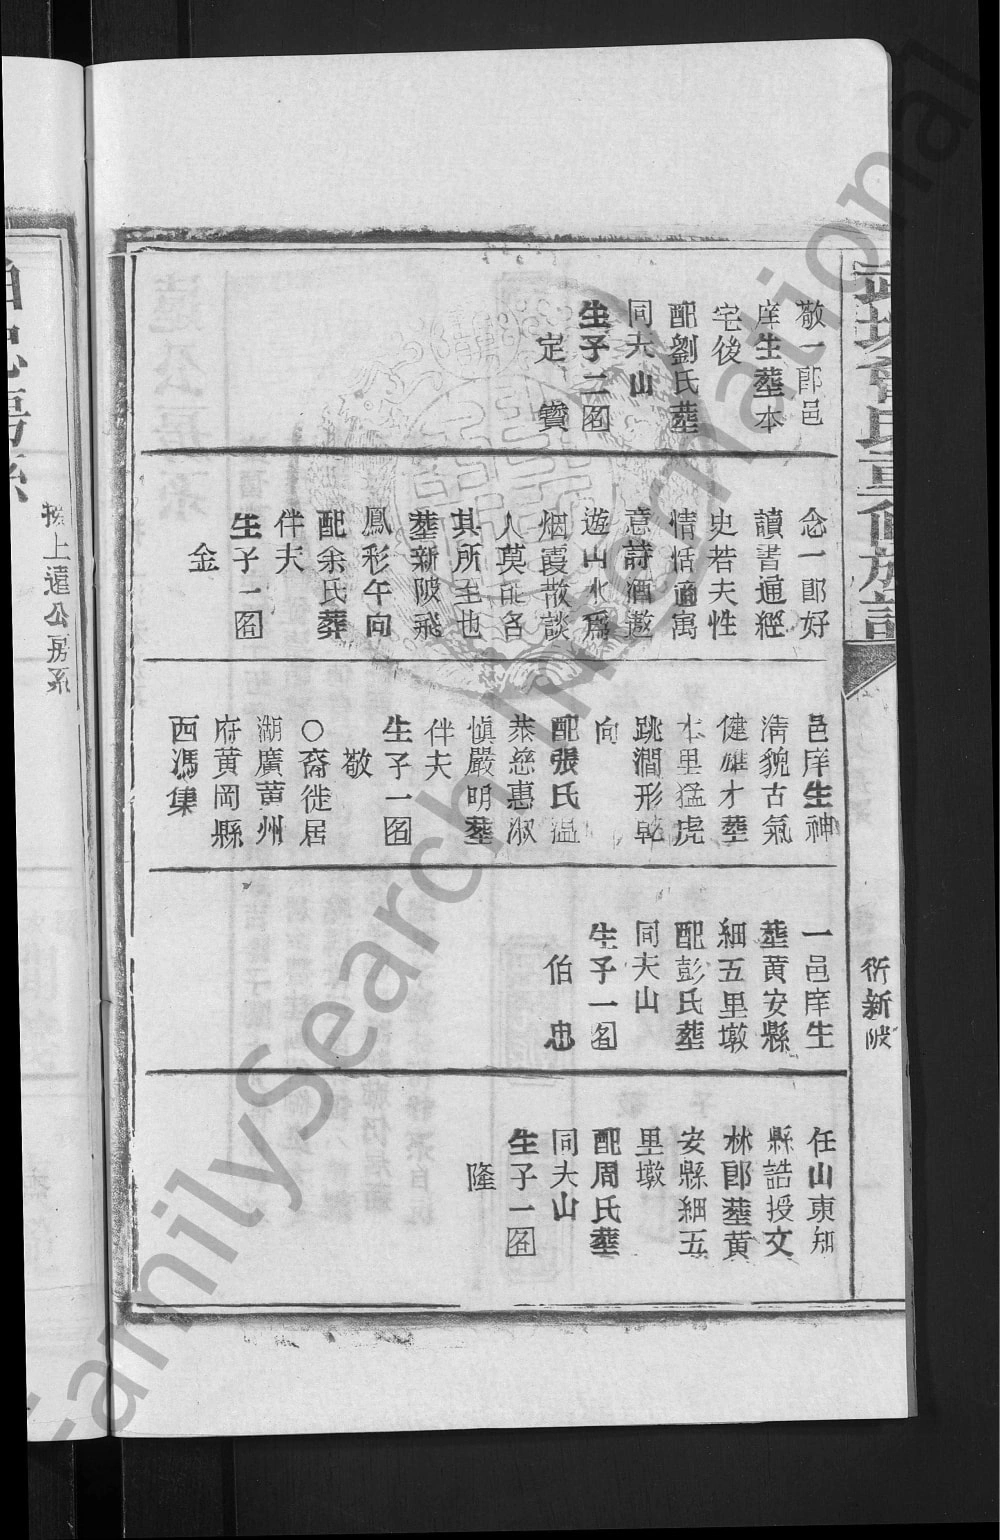 族
衍新陂
敬一郎邑
庠生葬本
宅後
配劉氏葬
同夫山
生子二名
定 寶
念一郎好
讀書通經
史若夫性
情恬適寓
意詩酒遨
遊山水爲
烟霞散談
人莫能名
其所至也
葬新陂飛
鳳彩午向
配余氏葬
伴夫
生子一名
金
邑庠生神
清貌古氣
健雄才葬
本里猛虎
跳澗形乾
向
配張氏溫
恭慈惠淑
愼嚴明葬
伴夫
生子一名
敬
○裔徙居
湖廣黄州
府黄岡縣
西馮集
一邑庠生
葬黄安縣
細五里墩
配彭氏葬
同夫山
生子一名
伯 忠
任山東知
縣誥授文
林郎葬黄
安縣細五
里墩
配周氏葬
同夫山
生子一名
隆
上遠公房系
FamilySearch International